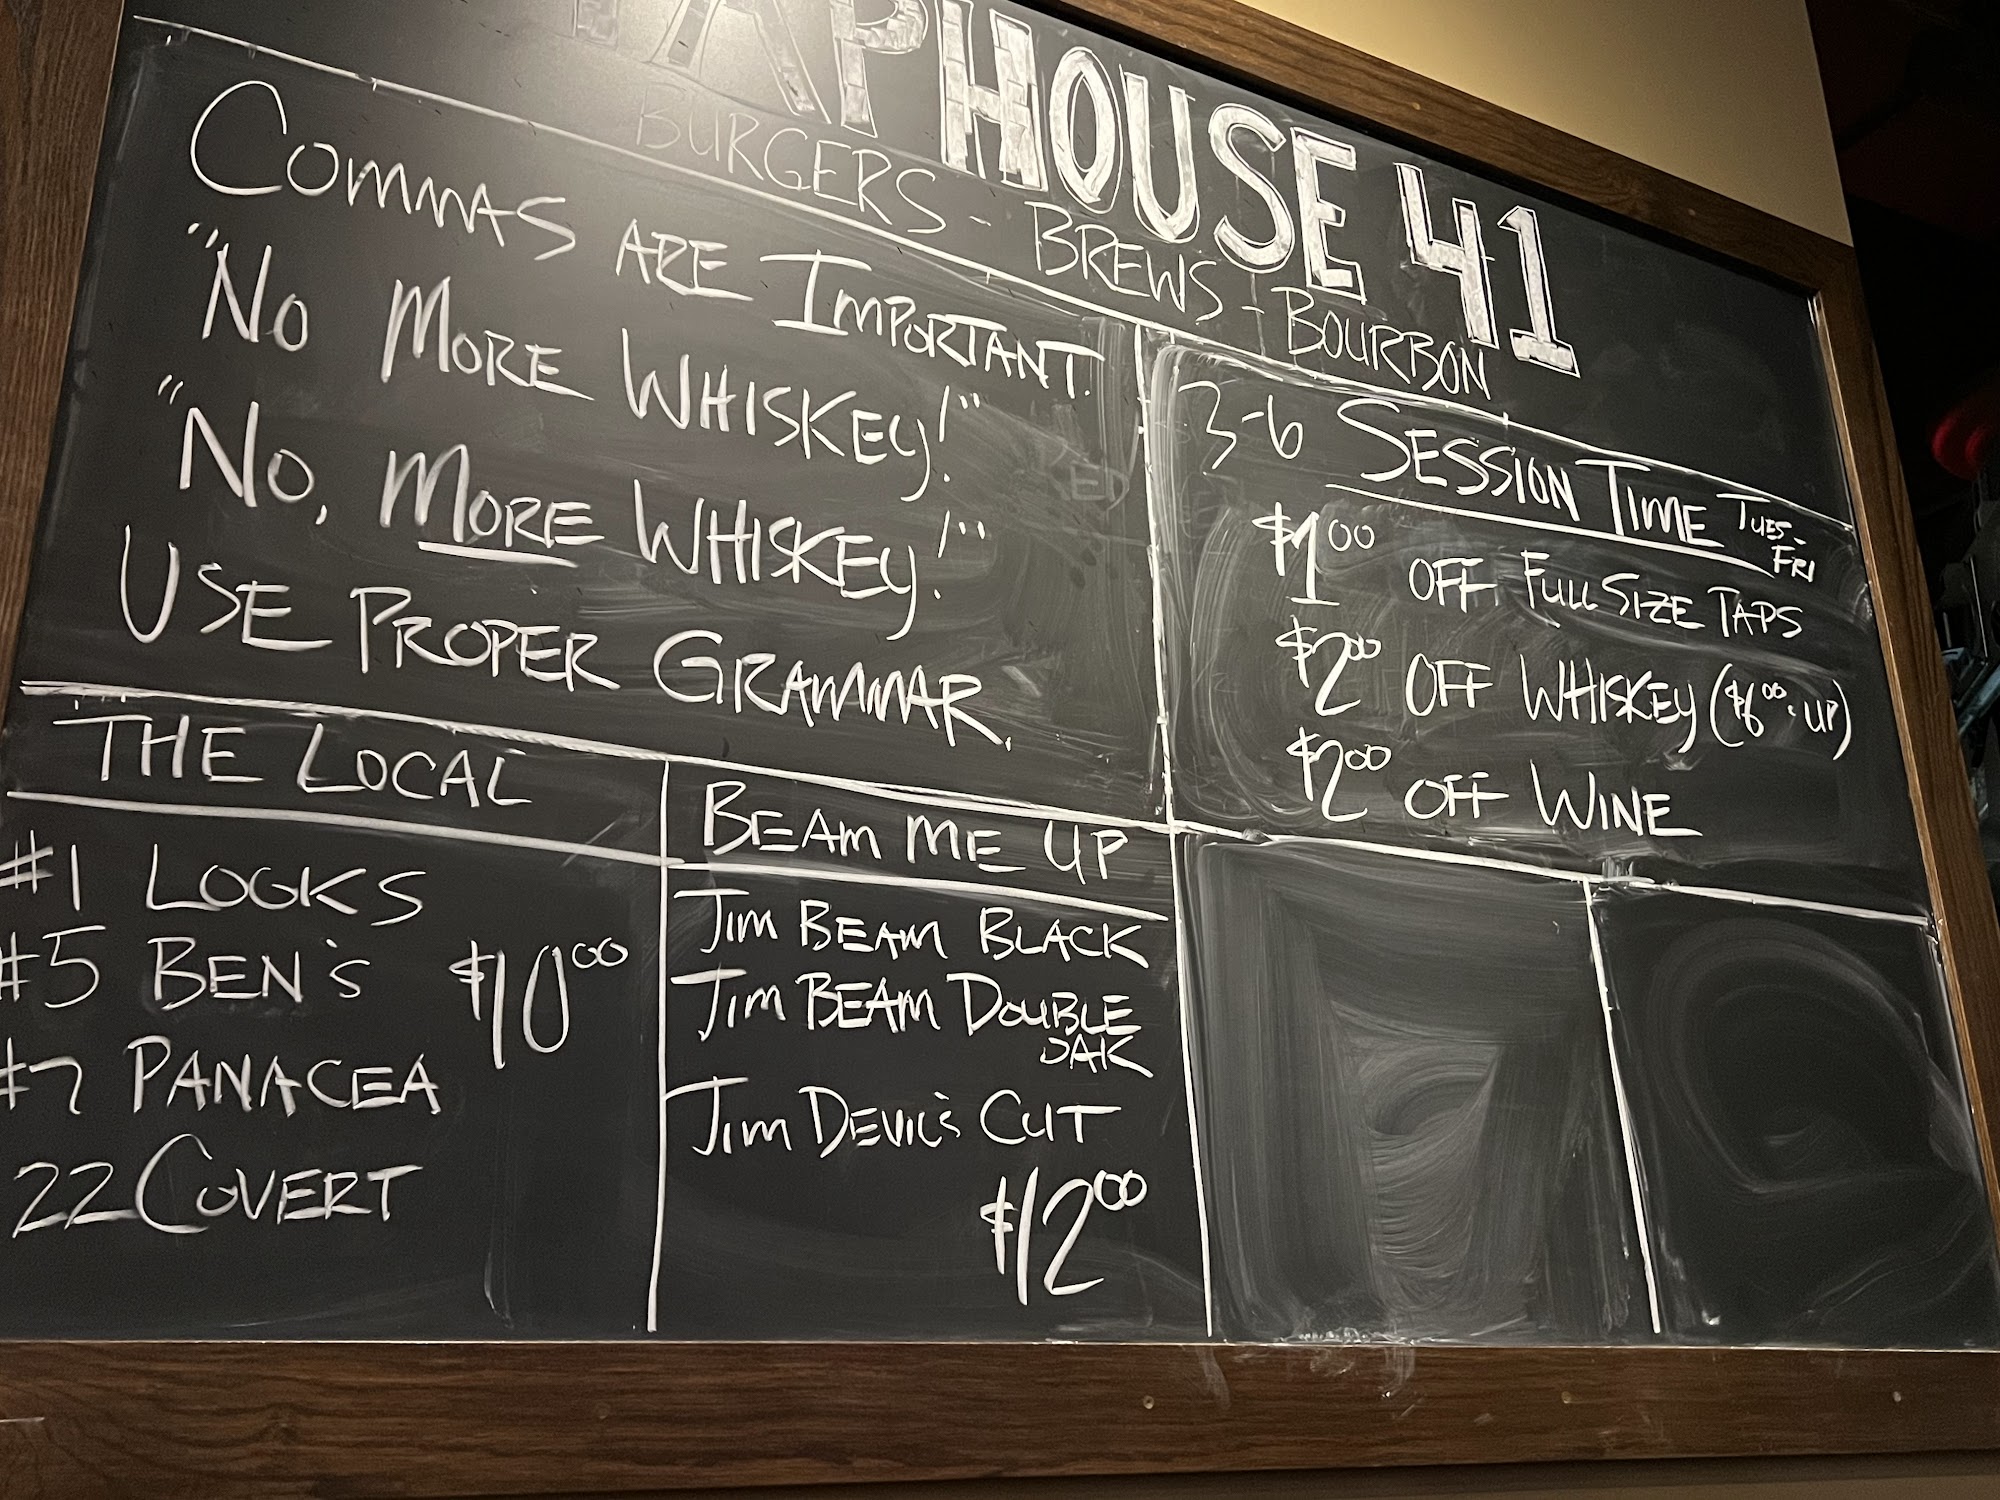 TAPHOUSE 41
BURGERS - BREWS - BOURBON
COMMAS ARE IMPORTANT.
"NO MORE WHISKEY!"
"NO, MORE WHISKEY!"
USE PROPER GRAMMAR.
3-6 SESSION TIME TUES-
FRI
$1.00 OFF FULL SIZE TAPS
$2.00 OFF WHISKEY ($6.00 - UP)
$2.00 OFF WINE
THE LOCAL
#1 LOOKS
#5 BEN'S $10.00
#7 PANACEA
22 COVERT
BEAM ME UP
JIM BEAM BLACK
JIM BEAM DOUBLE
OAK
JIM DEVIL'S CUT
$12.00